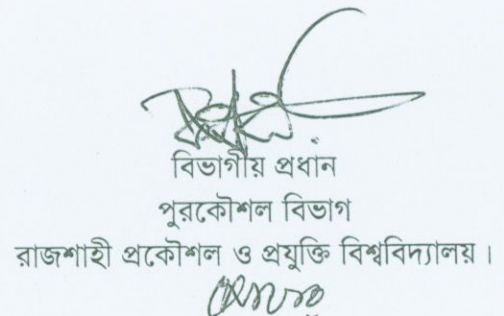 বিভাগীয় প্রধান
পুরকৌশল বিভাগ
রাজশাহী প্রকৌশল ও প্রযুক্তি বিশ্ববিদ্যালয়।